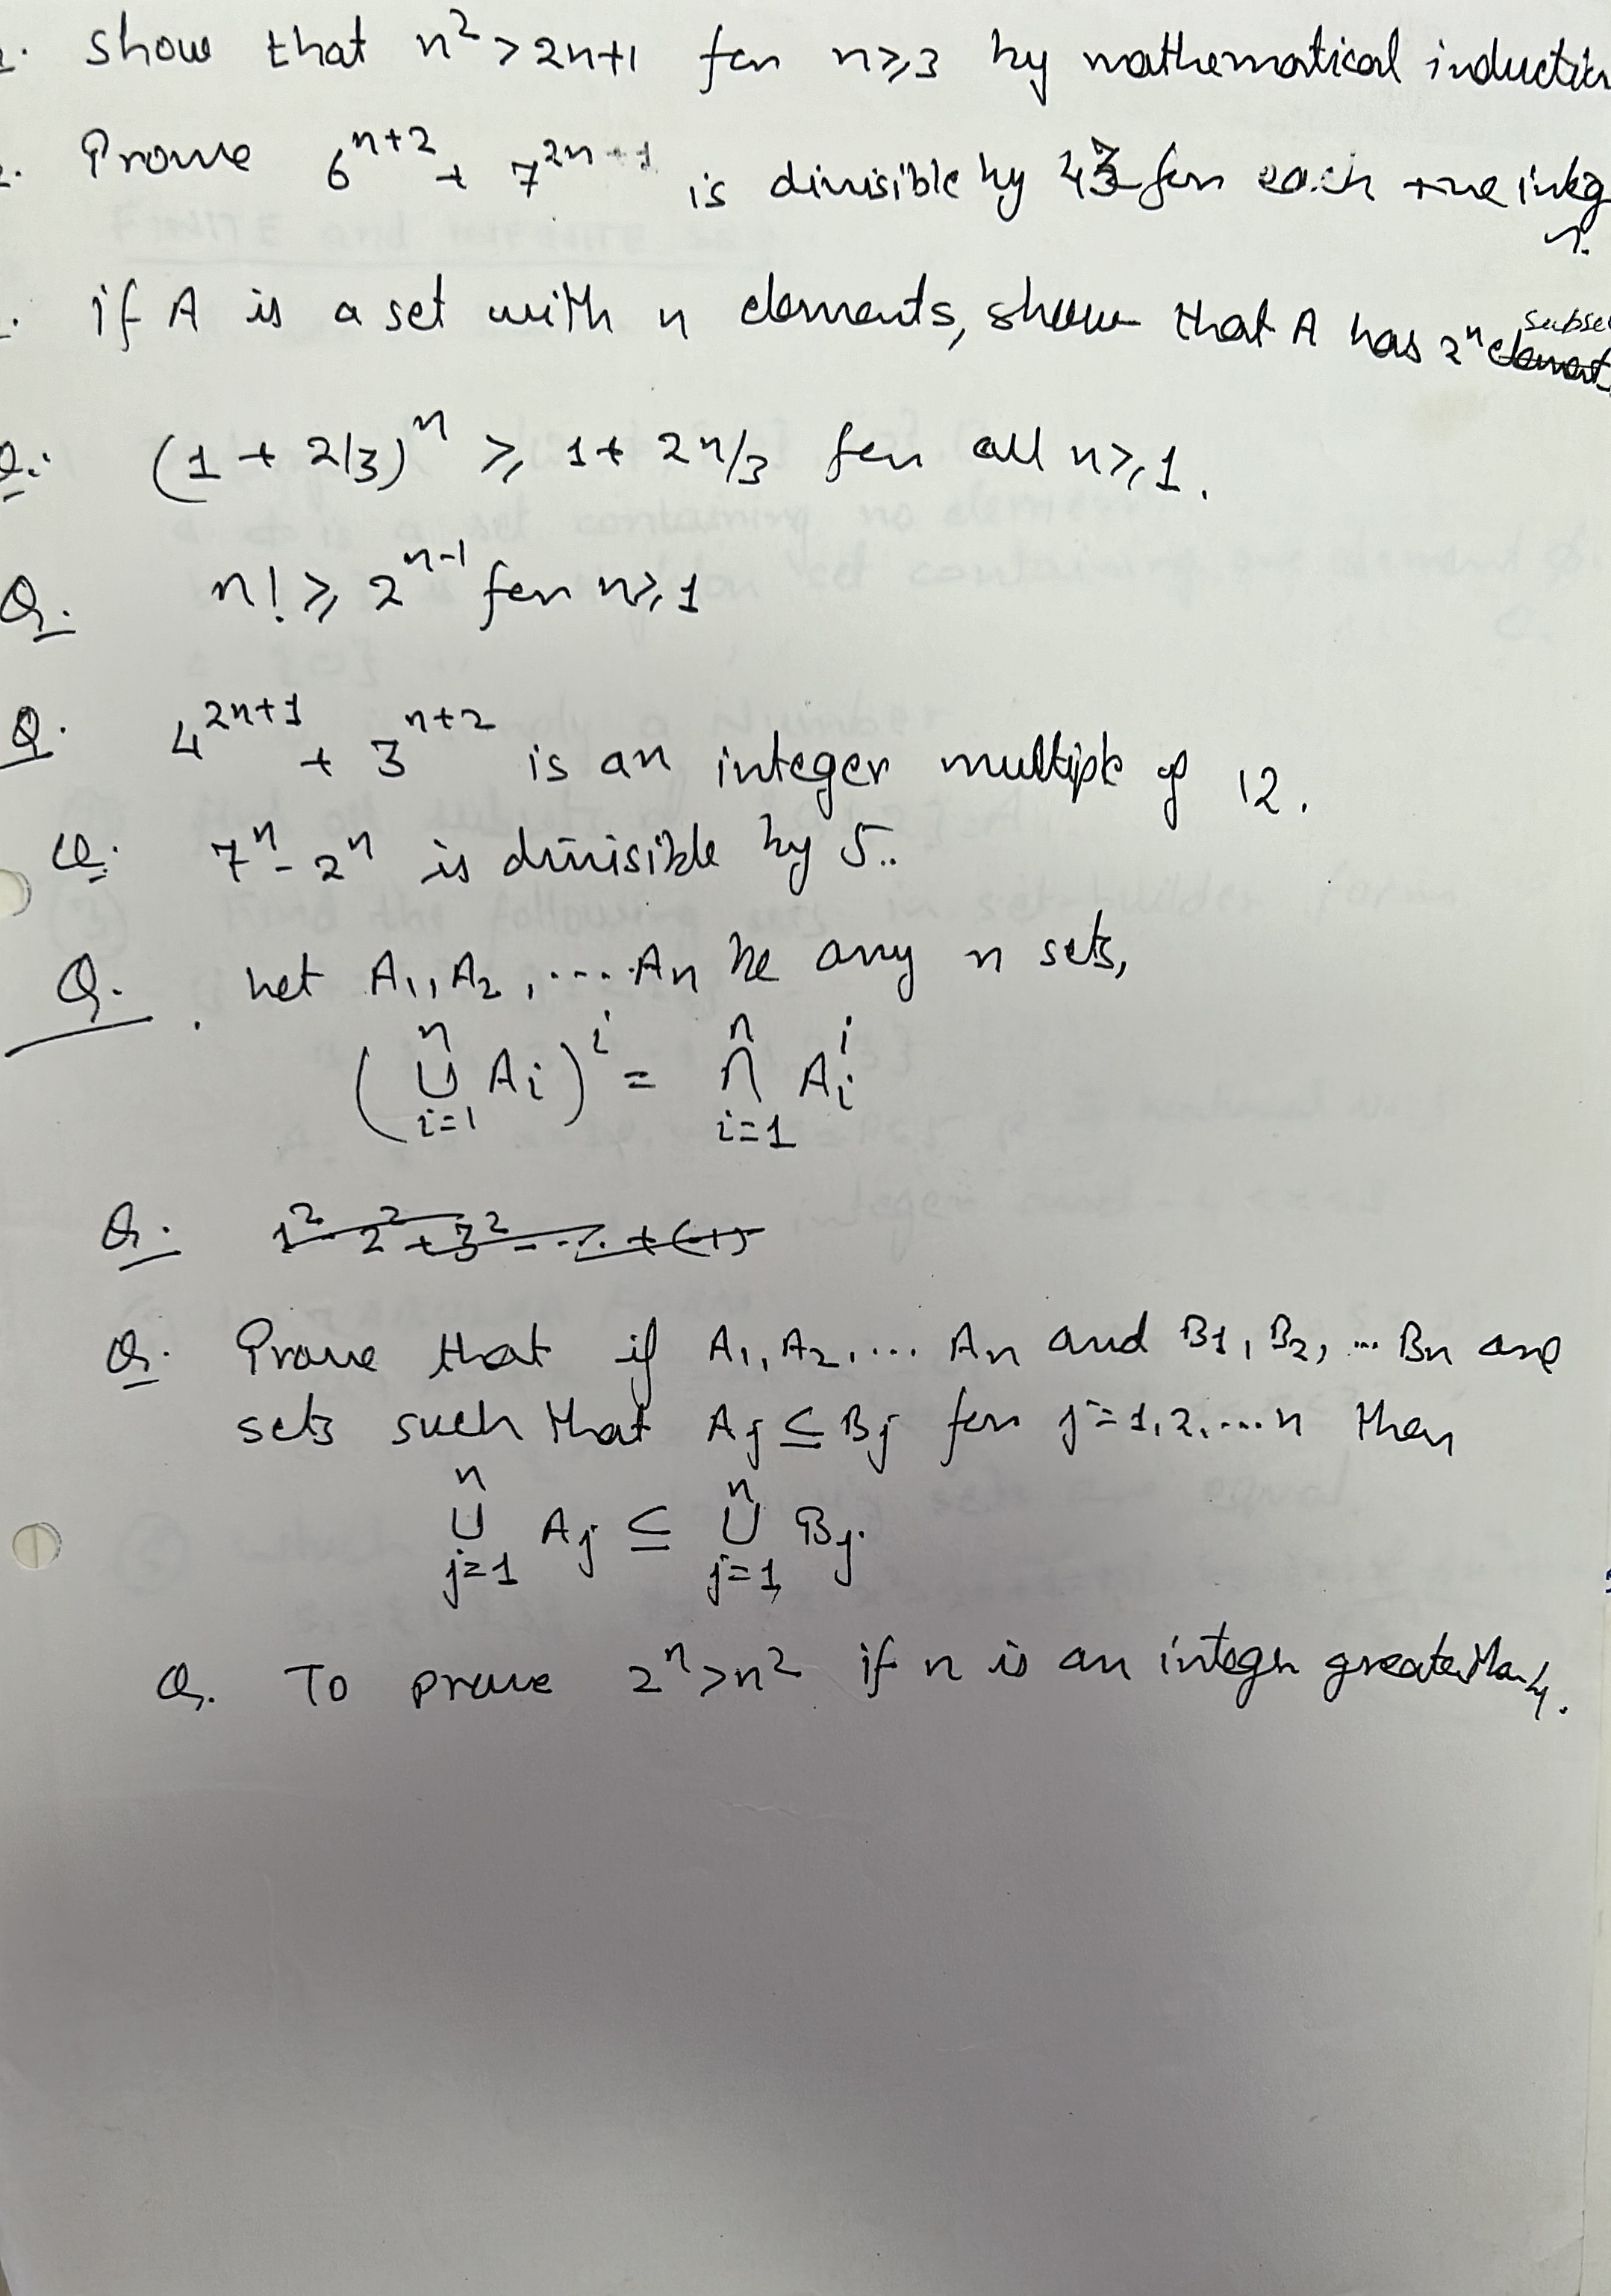 . Show that n² > 2n+1 for n ≥ 3 by mathematical induction
. Prove 6^{n+2} + 7^{2n+1} is divisible by 43 for each +ve integ
n.
. if A is a set with n elements, show that A has 2^n subse
Q. (1 + 2/3)^n ≥ 1 + 2n/3 for all n ≥ 1.
Q. n! ≥ 2^{n-1} for n ≥ 1
Q. 4^{2n+1} + 3^{n+2} is an integer multiple of 12.
Q. 7^n - 2^n is divisible by 5..
Q. Let A₁, A₂, .... An be any n sets,
(⋃_{i=1}^{n} Ai)^i = ⋂_{i=1}^{n} Ai^i
Q. 1² - 2² + 3² - ... + (-1)
Q. Prove that if A₁, A₂, ... An and B1, B2, ... Bn are
sets such that Aj ⊆ Bj for j = 1, 2, ... n then
⋃_{j=1}^{n} Aj ⊆ ⋃_{j=1}^{n} Bj.
Q. To prove 2^n > n² if n is an integer greater than 4.